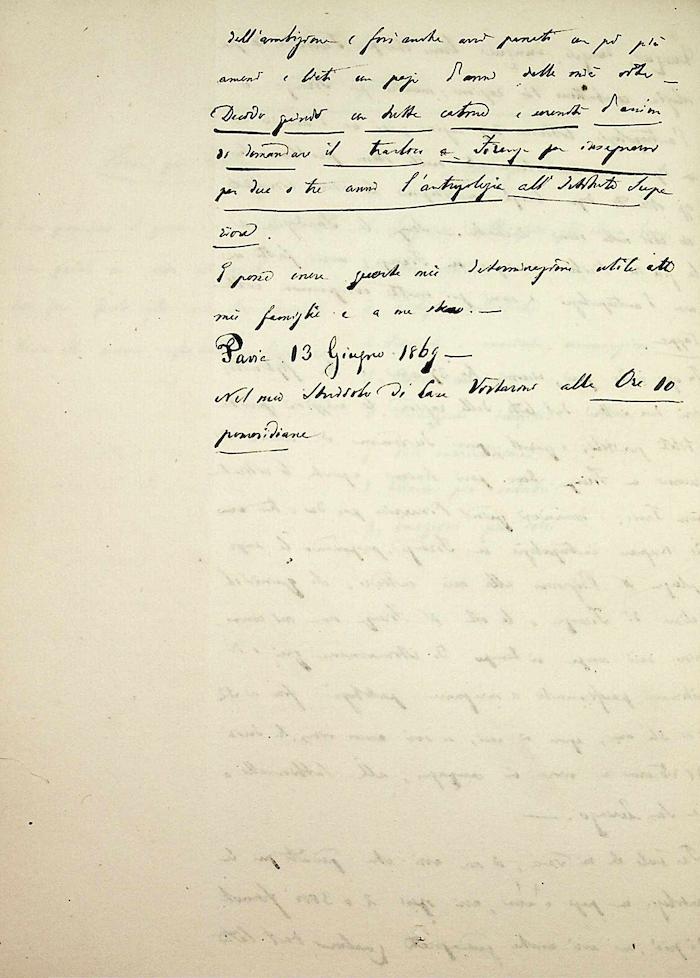 dell'ambizione e forse anche avrò passati un pò più
ameni e lieti un pajo d'anni della mia vita —
Decido quindi con tutta calma e serenità d'animo
di domandare il trasloco a Firenze per insegnarvi
per due o tre anni l'antropologia all'Istituto Supe
riore.
E possa essere questa mia determinazione utile alla
mia famiglia e a me stesso. —
Pavia 13 Giugno 1869 —
Nel mio Studiolo di Casa alle Ore 10
pomeridiane